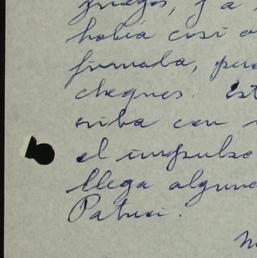 juegos, y a
había casi o
firmada, per
cheques. Est
criba con
el impulso
llega alguno
Patuxi.